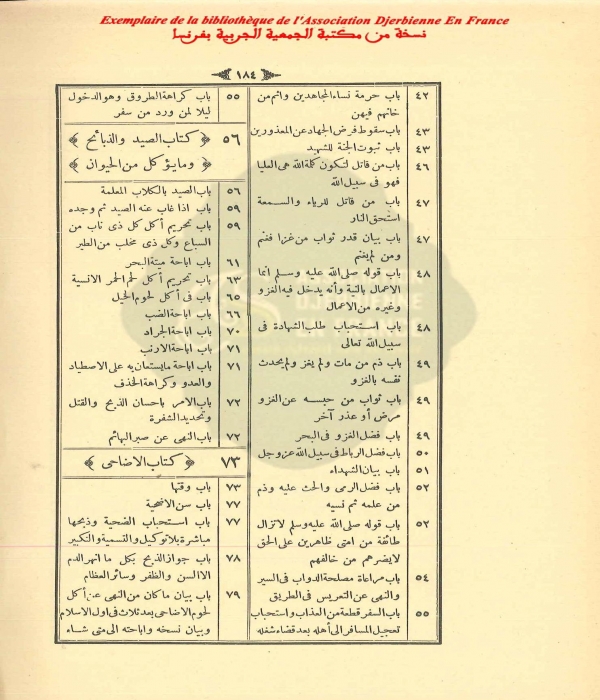 Exemplaire de la bibliothèque de l'Association Djerbienne En France
نسخة من مكتبة الجمعية الجربية بفرنسا
١٨٤
٤٢ باب حرمة نساء المجاهدين واثم من
خانهم فيهن
٤٣ باب سقوط فرض الجهاد عن المعذورين
٤٣ باب ثبوت الجنة للشهيد
٤٦ باب من قاتل لتكون كلمة الله هى العليا
فهو فى سبيل الله
٤٧ باب من قاتل للرياء والسمعة
استحق النار
٤٧ باب بيان قدر ثواب من غزا فغنم
ومن لم يغنم
٤٨ باب قوله صلى الله عليه وسلم انما
الاعمال بالنية وأنه يدخل فيه الغزو
وغيره من الاعمال
٤٨ باب استحباب طلب الشهادة فى
سبيل الله تعالى
٤٩ باب ذم من مات ولم يغز ولم يحدث
نفسه بالغزو
٤٩ باب ثواب من حبسه عن الغزو
مرض أو عذر آخر
٤٩ باب فضل الغزو فى البحر
٥٠ باب فضل الرباط فى سبيل الله عز وجل
٥١ باب بيان الشهداء
٥٢ باب فضل الرمى والحث عليه وذم
من علمه ثم نسيه
٥٢ باب قوله صلى الله عليه وسلم لاتزال
طائفة من امتى ظاهرين على الحق
لايضرهم من خالفهم
٥٤ باب مراعاة مصلحة الدواب فى السير
والنهى عن التعريس فى الطريق
٥٥ باب السفر قطعة من العذاب واستحباب
تعجيل المسافر الى أهله بعد قضاء شغله
٥٥ باب كراهة الطروق وهو الدخول
ليلا لمن ورد من سفر
٥٦ ﴿ كتاب الصيد والذبائح ﴾
﴿ وما يؤكل من الحيوان ﴾
٥٦ باب الصيد بالكلاب المعلمة
٥٩ باب اذا غاب عنه الصيد ثم وجده
٥٩ باب تحريم أكل كل ذى ناب من
السباع وكل ذى مخلب من الطير
٦١ باب اباحة ميتة البحر
٦٣ باب تحريم أكل لحم الحمر الانسية
٦٥ باب فى أكل لحوم الخيل
٦٦ باب اباحة الضب
٧٠ باب اباحة الجراد
٧١ باب اباحة الارنب
٧١ باب اباحة مايستعان به على الاصطياد
والعدو وكراهة الخذف
٧٢ باب الامر باحسان الذبح والقتل
وتحديد الشفرة
٧٢ باب النهى عن صبر البهائم
٧٣ ﴿ كتاب الاضاحى ﴾
٧٣ باب وقتها
٧٧ باب سن الاضحية
٧٧ باب استحباب الضحية وذبحها
مباشرة بلا توكيل والتسمية والتكبير
٧٨ باب جواز الذبح بكل ما انهر الدم
الا السن والظفر وسائر العظام
٧٩ باب بيان ماكان من النهى عن أكل
لحوم الاضاحى بعد ثلاث فى اول الاسلام
وبيان نسخه واباحته الى متى شاء